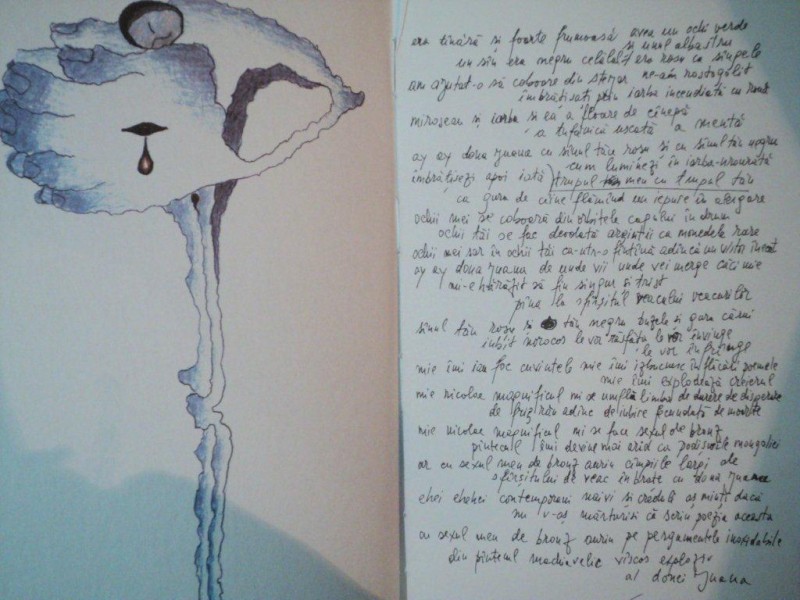 era tînără și foarte frumoasă avea un ochi verde
și unul albastru
un sîn era negru celălalt era roșu ca sîngele
am ajutat-o să coboare din stejar ne-am rostogolit
îmbrățișați prin iarba incendiată cu rouă
miroseau și iarba și ea a floare de cînepă
a tufoaică uscată a mentă
ay ay dona Juana cu sînul tău roșu și cu sînul tău negru
cum luminezi în iarba-nrourată
îmbrățișezi apoi iată trupul meu cu trupul tău
ca gura de cîine flămînd un iepure în alergare
ochii mei se coboară din orbitele capului în drum
ochii tăi se fac deodată arginții ca monedele rare
ochii mei sar în ochii tăi ca-ntr-o fîntînă adîncă un înecat
ay ay dona Juana de unde vii unde vei merge căci mie
mi-e hărăzit să fiu singur și trist
pîna la sfîrșitul veacului veacurilor
sînul tău roșu și tău negru buzele și gura cărnii
iubit norocos le va răsfăța le vor învinge
le vor înfrînge
mie îmi iau foc cuvintele mie îmi izbucnesc în flăcări poemele
mie îmi explodează creierul
mie nicolae magnificul mi se umflă limba de durere de disperare
de adînc de iubire fecundată de moarte
mie nicolae magnificul mi se face sexul de bronz
pîntecul îmi devine mai arid ca podișurile mongoliei
ar cu sexul meu de bronz auriu cîmpiile largi ale
sfîrșitului de veac în brațe cu dona Juana
ehei ehehei contemporani naivi și creduli aș minți dacă
nu v-aș mărturisi că scriu poezia aceasta
cu sexul meu de bronz auriu pe pergamentele inoxidabile
din pîntecul machiavelic vîscos exploziv
al donei Juana